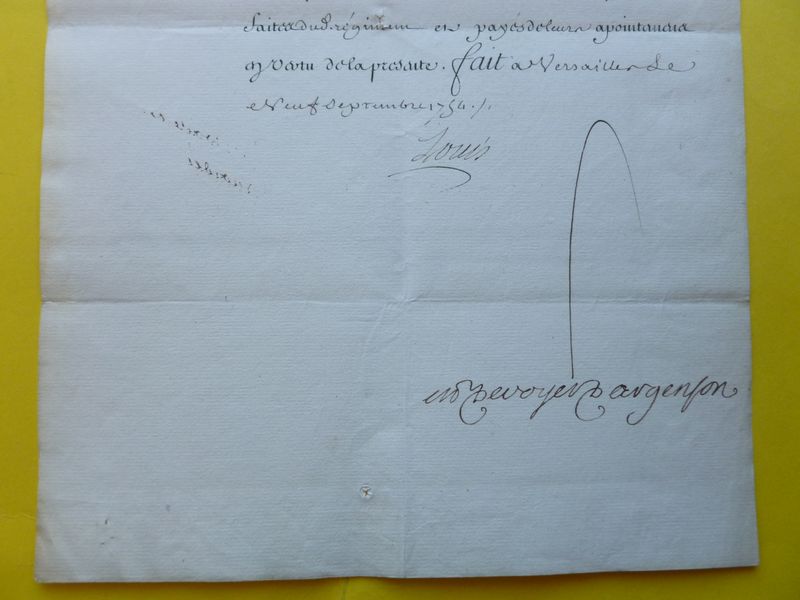 faites du d. régiment et payés de leurs apointemens
en vertu de la presente. fait a Versailles Le
Neuf Septembre 1754./.
Louis
M De voyer D argenson